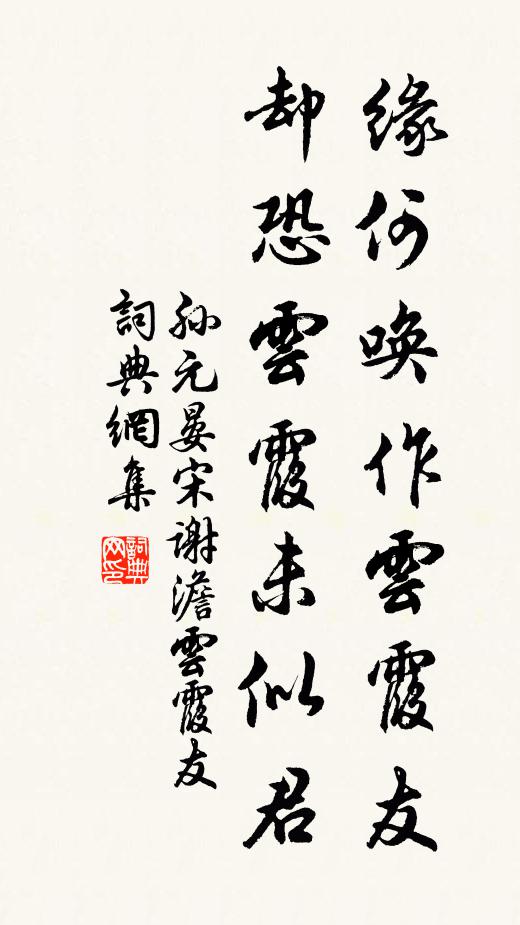 緣何喚作雲霞友
却恐雲霞未似君
孫元晏宋謝澹雲霞友
詞典網集
詞典网印